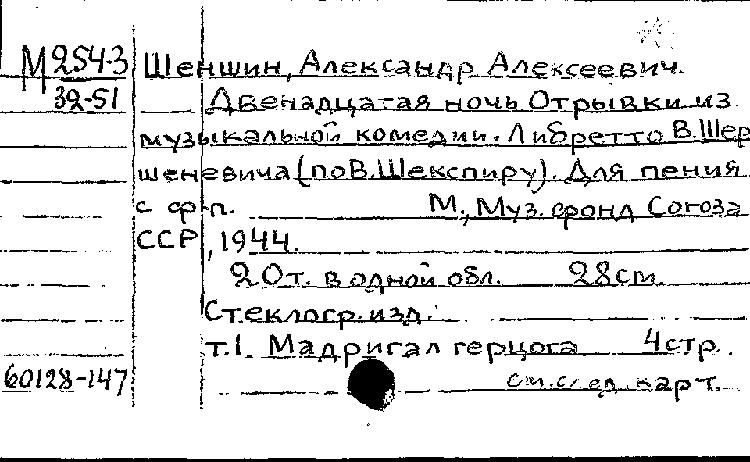 М 254-3
32-51
Шеншин, Александр Алексеевич.
Двенадцатая ночь Отрывки из
музыкальной комедии. Либретто В.Шер
шеневича (по В.Шекспиру). Для пения
с ф-п. М., Муз. фонд Союза
ССР, 1944.
20т. в одной обл. 28см.
Стеклогр. изд.
т.1. Мадригал герцога 4стр.
60128-147 см. след. карт.